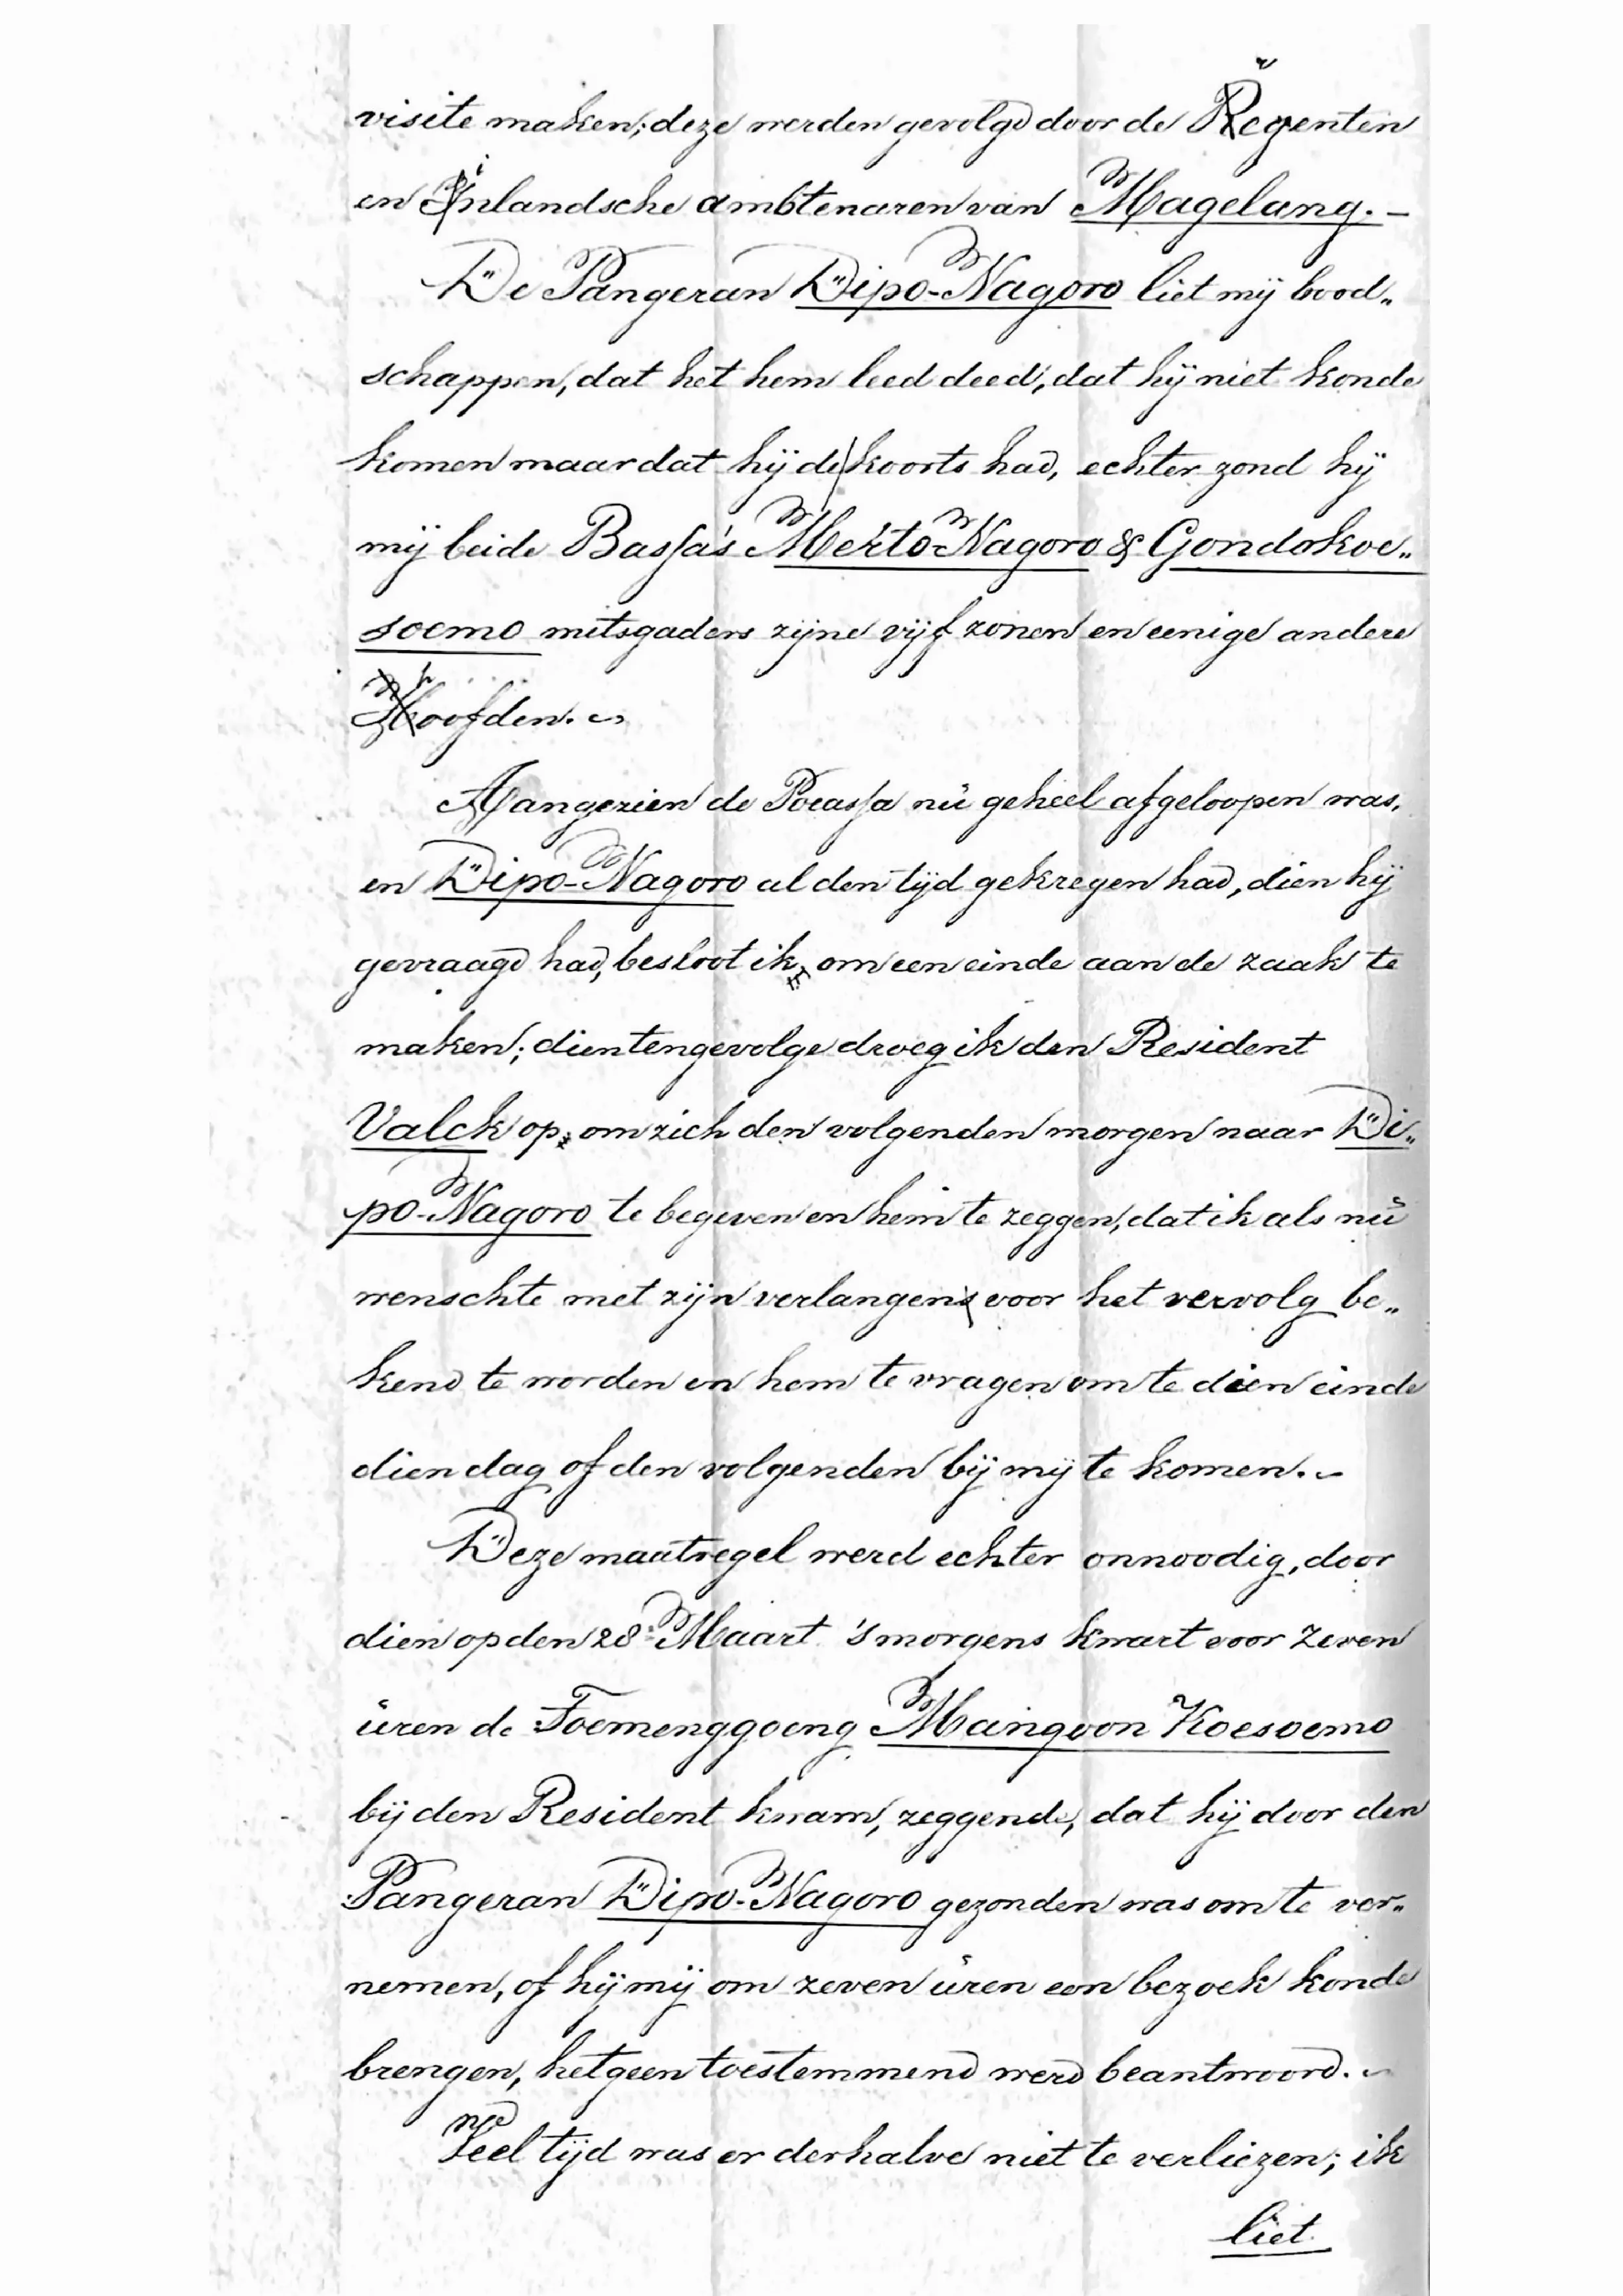 visite maken; deze werden gevolgd door de Regenten
en Inlandsche ambtenaren van Magelang. –
De Pangeran Dipo-Nagoro liet mij bood„
schappen, dat het hem leed deed, dat hij niet konde
komen maar dat hij de koorts had, echter zond hij
mij beide Bassa's Merto-Nagoro & Gondokoe„
soemo mitsgaders zijne vijf zonen en eenige andere
Hoofden. ~
Aangezien de Poeassa nu geheel afgeloopen was,
en Dipo-Nagoro al den tijd gekregen had, dien hij
gevraagd had, besloot ik, om een einde aan de zaak te
maken; dientengevolge droeg ik den Resident
Valck op, om zich den volgenden morgen naar Di„
po-Nagoro te begeven en hem te zeggen, dat ik als nu
wenschte met zijn verlangens voor het vervolg be„
kend te worden en hem te vragen om te dien einde
dien dag of den volgenden bij mij te komen. ~
Deze maatregel werd echter onnoodig, door
dien op den 28e Maart 's morgens kwart voor zeven
uren de Toemenggoeng Mangoon Koesoemo
bij den Resident kwam, zeggende, dat hij door den
Pangeran Dipo-Nagoro gezonden was om te ver„
nemen, of hij mij om zeven uren een bezoek konde
brengen, hetgeen toestemmend werd beantwoord. ~
Veel tijd was er derhalve niet te verliezen; ik
liet